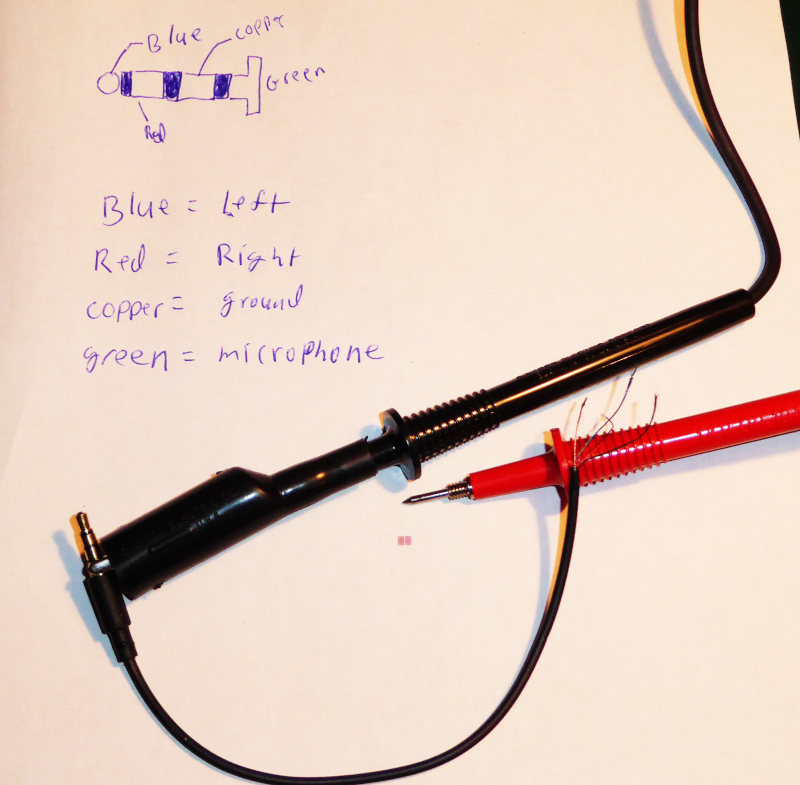 Blue
copper
Green
Red
Blue = Left
Red = Right
copper = ground
green = microphone